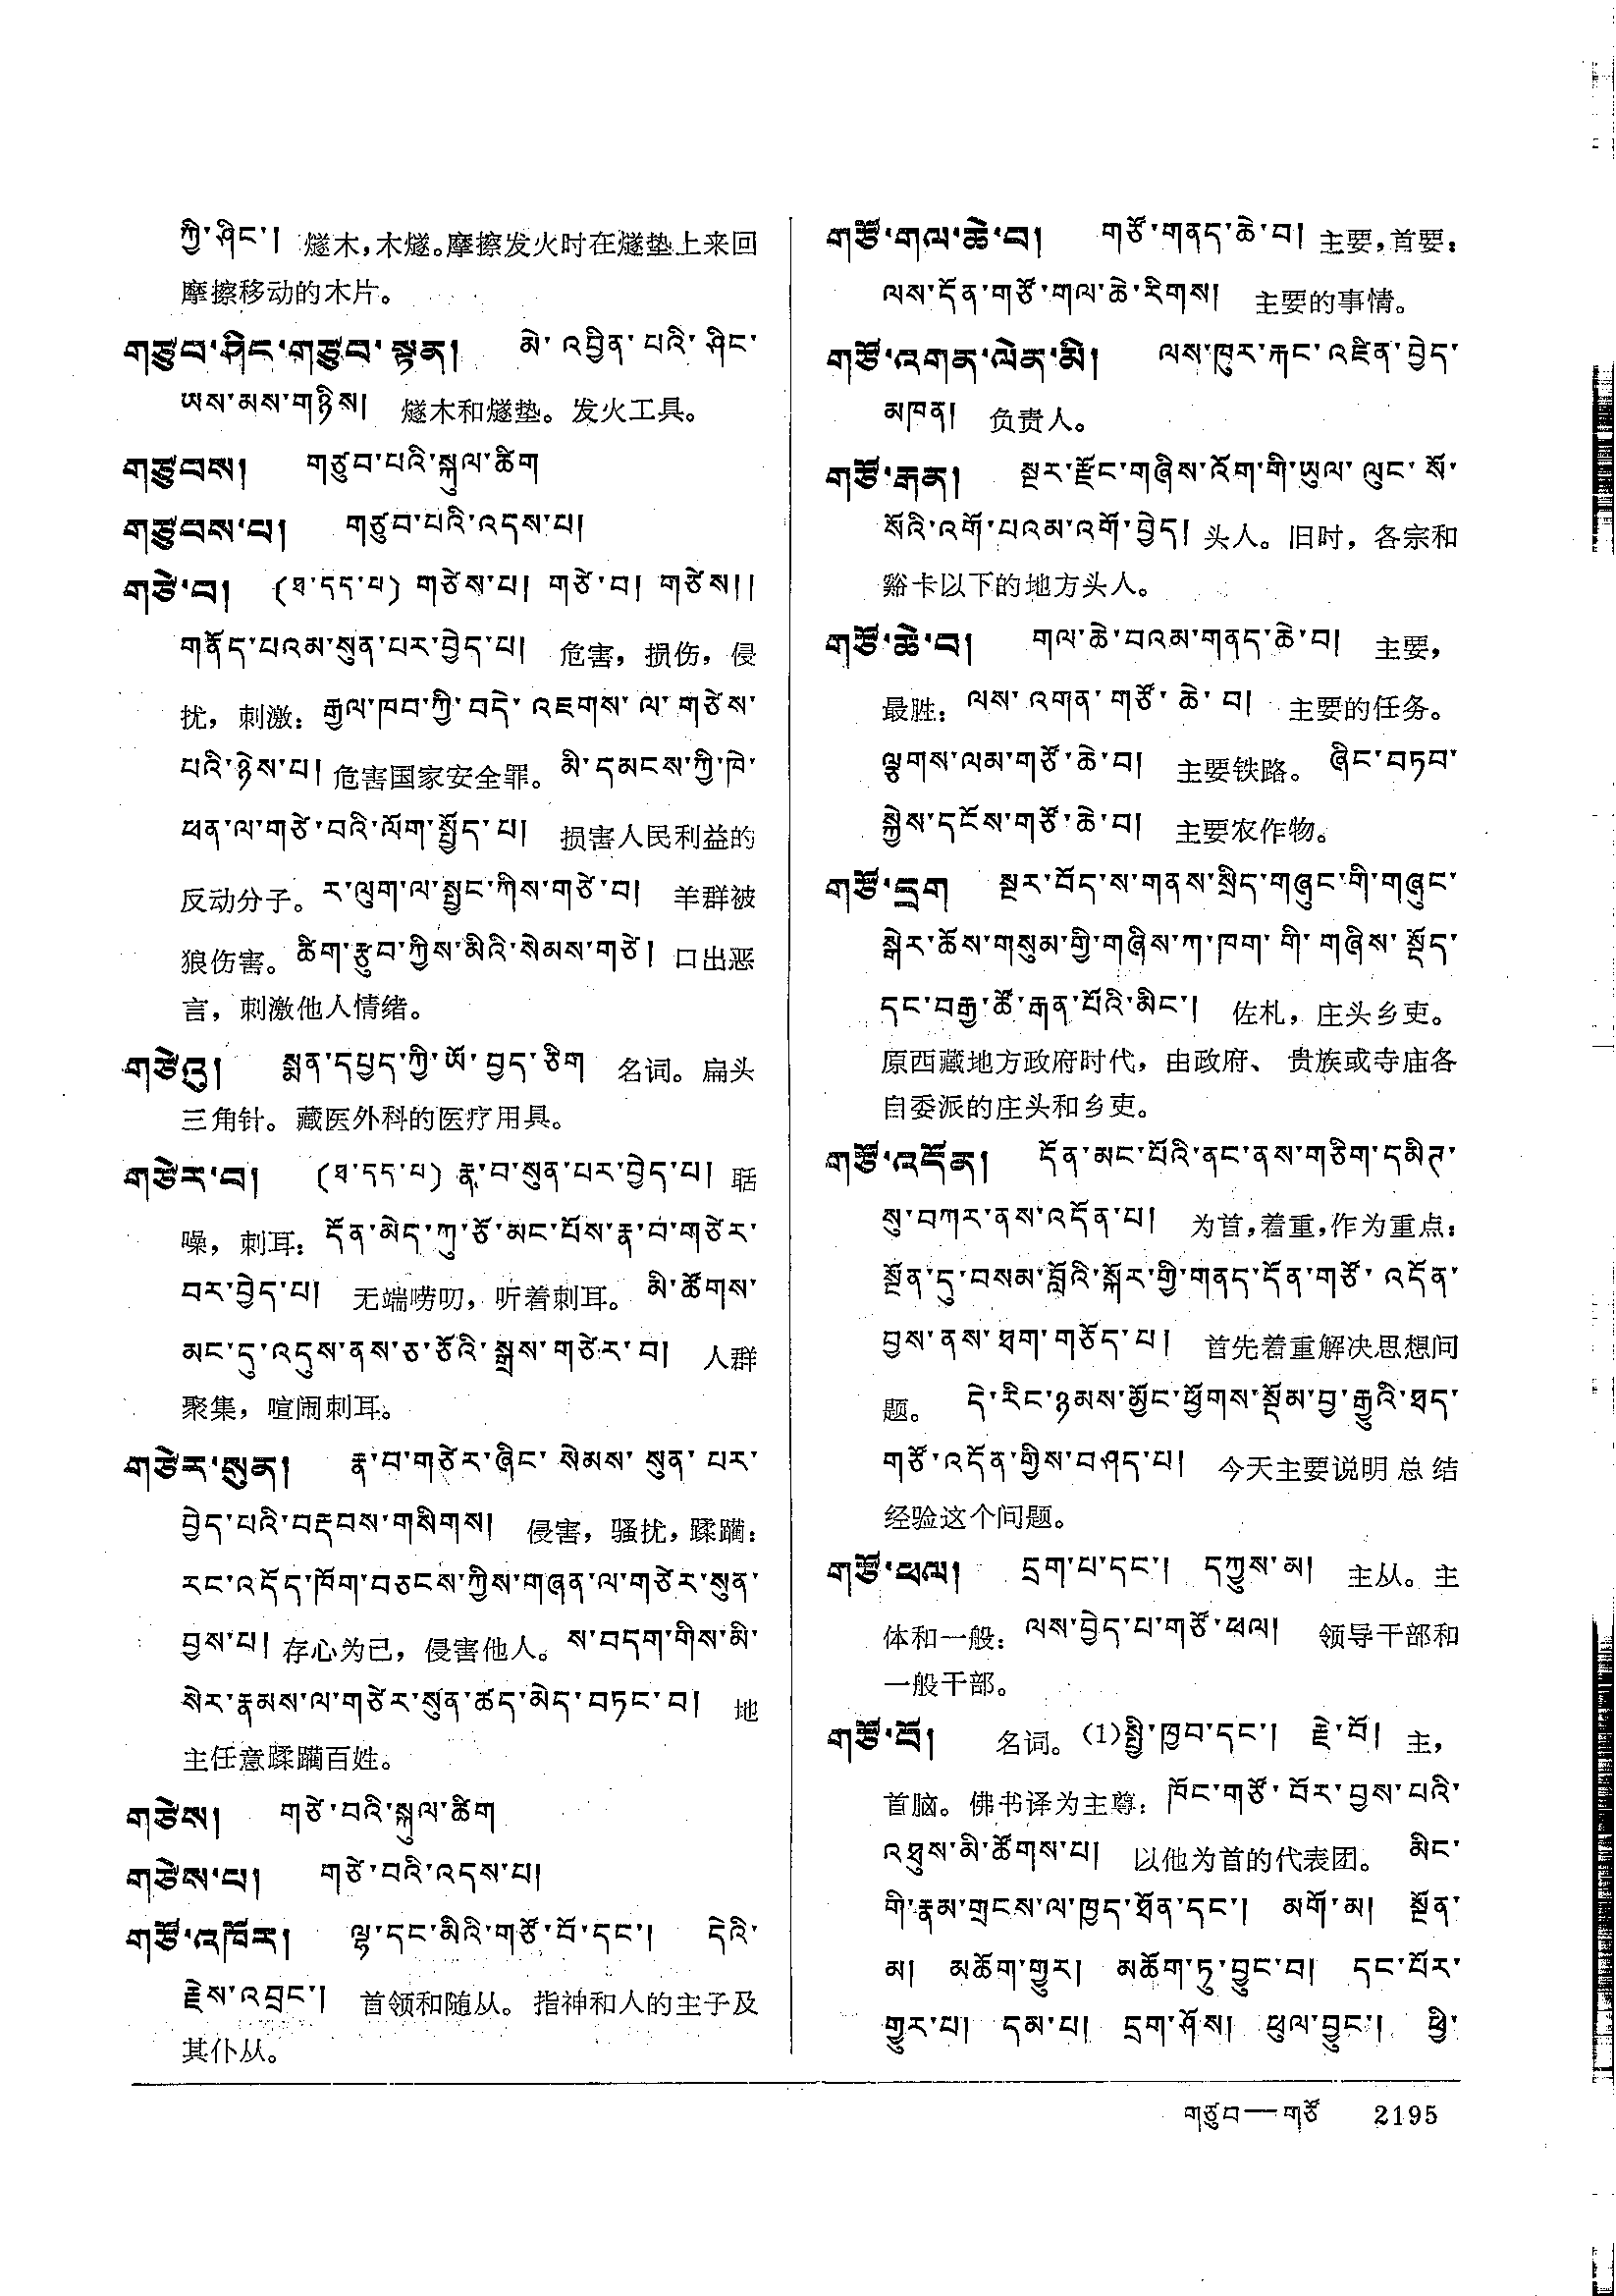 ཀྱི་ཤིང་། 燧木,木燧。摩擦发火时在燧垫上来回
摩擦移动的木片。
གཙུབ་ཤིང་གཙུབ་སྟན། མེ་འབྱིན་པའི་ཤིང་
ཡས་མས་གཉིས། 燧木和燧垫。发火工具。
གཙུབས། གཙུབ་པའི་སྐུལ་ཚིག
གཙུབས་པ། གཙུབ་པའི་འདས་པ།
གཙེ་བ། (ཐ་དད་པ) གཙེས་པ། གཙེ་བ། གཙེས།།
གནོད་པའམ་སུན་པར་བྱེད་པ། 危害，损伤，侵
扰，刺激：རྒྱལ་ཁབ་ཀྱི་བདེ་འཇགས་ལ་གཙེས་
པའི་ཉེས་པ། 危害国家安全罪。མི་དམངས་ཀྱི་ཁེ་
ཕན་ལ་གཙེ་བའི་ལོག་སྤྱོད་པ། 损害人民利益的
反动分子。ར་ལུག་ལ་སྤྱང་ཀིས་གཙེ་བ། 羊群被
狼伤害。ཚིག་རྩུབ་ཀྱིས་མིའི་སེམས་གཙེ། 口出恶
言，刺激他人情绪。
གཙེའུ། སྨན་དཔྱད་ཀྱི་ཡོ་བྱད་ཅིག 名词。扁头
三角针。藏医外科的医疗用具。
གཙེར་བ། (ཐ་དད་པ) རྣ་བ་སུན་པར་བྱེད་པ། 聒
噪，刺耳：དོན་མེད་ཀུ་ཅོ་མང་པོས་རྣ་བ་གཙེར་
བར་བྱེད་པ། 无端唠叨，听着刺耳。མི་ཚོགས་
མང་དུ་འདུས་ནས་ཅ་ཅོའི་སྒྲས་གཙེར་བ། 人群
聚集，喧闹刺耳。
གཙེར་སུན། རྣ་བ་གཙེར་ཞིང་སེམས་སུན་པར་
བྱེད་པའི་བརྡབས་གསིགས། 侵害，骚扰，蹂躏：
རང་འདོད་ཁོག་བཅངས་ཀྱིས་གཞན་ལ་གཙེར་སུན་
བྱས་པ། 存心为己，侵害他人。ས་བདག་གིས་མི་
སེར་རྣམས་ལ་གཙེར་སུན་ཚད་མེད་བཏང་བ། 地
主任意蹂躏百姓。
གཙེས། གཙེ་བའི་སྐུལ་ཚིག
གཙེས་པ། གཙེ་བའི་འདས་པ།
གཙོ་འཁོར། ལྷ་དང་མིའི་གཙོ་བོ་དང་། དེའི་
རྗེས་འབྲང་། 首领和随从。指神和人的主子及
其仆从。
གཙོ་གལ་ཆེ་བ། གཙོ་གནད་ཆེ་བ། 主要,首要：
ལས་དོན་གཙོ་གལ་ཆེ་རིགས། 主要的事情。
གཙོ་འགན་ལེན་མི། ལས་ཁུར་རྐང་འཛིན་བྱེད་
མཁན། 负责人。
གཙོ་རྒན། སྔར་རྫོང་གཞིས་འོག་གི་ཡུལ་ལུང་སོ་
སོའི་འགོ་པའམ་འགོ་བྱེད། 头人。旧时，各宗和
谿卡以下的地方头人。
གཙོ་ཆེ་བ། གལ་ཆེ་བའམ་གནད་ཆེ་བ། 主要，
最胜：ལས་འགན་གཙོ་ཆེ་བ། 主要的任务。
ལྕགས་ལམ་གཙོ་ཆེ་བ། 主要铁路。ཞིང་བཏབ་
སྐྱེས་དངོས་གཙོ་ཆེ་བ། 主要农作物。
གཙོ་དྲག སྔར་བོད་ས་གནས་སྲིད་གཞུང་གི་གཞུང་
སྒེར་ཆོས་གསུམ་གྱི་གཞིས་ཀ་ཁག་གི་གཞིས་སྡོད་
དང་བརྒྱ་ཚོ་རྒན་པོའི་མིང་། 佐札，庄头乡吏。
原西藏地方政府时代，由政府、贵族或寺庙各
自委派的庄头和乡吏。
གཙོ་འདོན། དོན་མང་པོའི་ནང་ནས་གཅིག་དམིཊ་
སུ་བཀར་ནས་འདོན་པ། 为首,着重,作为重点：
སྔོན་དུ་བསམ་བློའི་སྐོར་གྱི་གནད་དོན་གཙོ་འདོན་
བྱས་ནས་ཐག་གཅོད་པ། 首先着重解决思想问
题。 དེ་རིང་ཉམས་མྱོང་ཕྱོགས་སྡོམ་བྱ་རྒྱུའི་ཐད་
གཙོ་འདོན་གྱིས་བཤད་པ། 今天主要说明总结
经验这个问题。
གཙོ་ཕལ། དྲག་པ་དང་། དཀྱུས་མ། 主从。主
体和一般：ལས་བྱེད་པ་གཙོ་ཕལ། 领导干部和
一般干部。
གཙོ་བོ། 名词。(1)སྤྱི་ཁྱབ་དང་། རྗེ་བོ། 主，
首脑。佛书译为主尊：ཁོང་གཙོ་བོར་བྱས་པའི་
འཐུས་མི་ཚོགས་པ། 以他为首的代表团。 མིང་
གི་རྣམ་གྲངས་ལ་ཁྱད་ཐོན་དང་། མགོ་མ། སྔོན་
མ། མཆོག་གྱུར། མཆོག་ཏུ་བྱུང་བ། དང་པོར་
གྱུར་པ། དམ་པ། དྲག་ཤོས། ཕུལ་བྱུང་། ཕྱི་
གཙུབ—གཙོ 2195